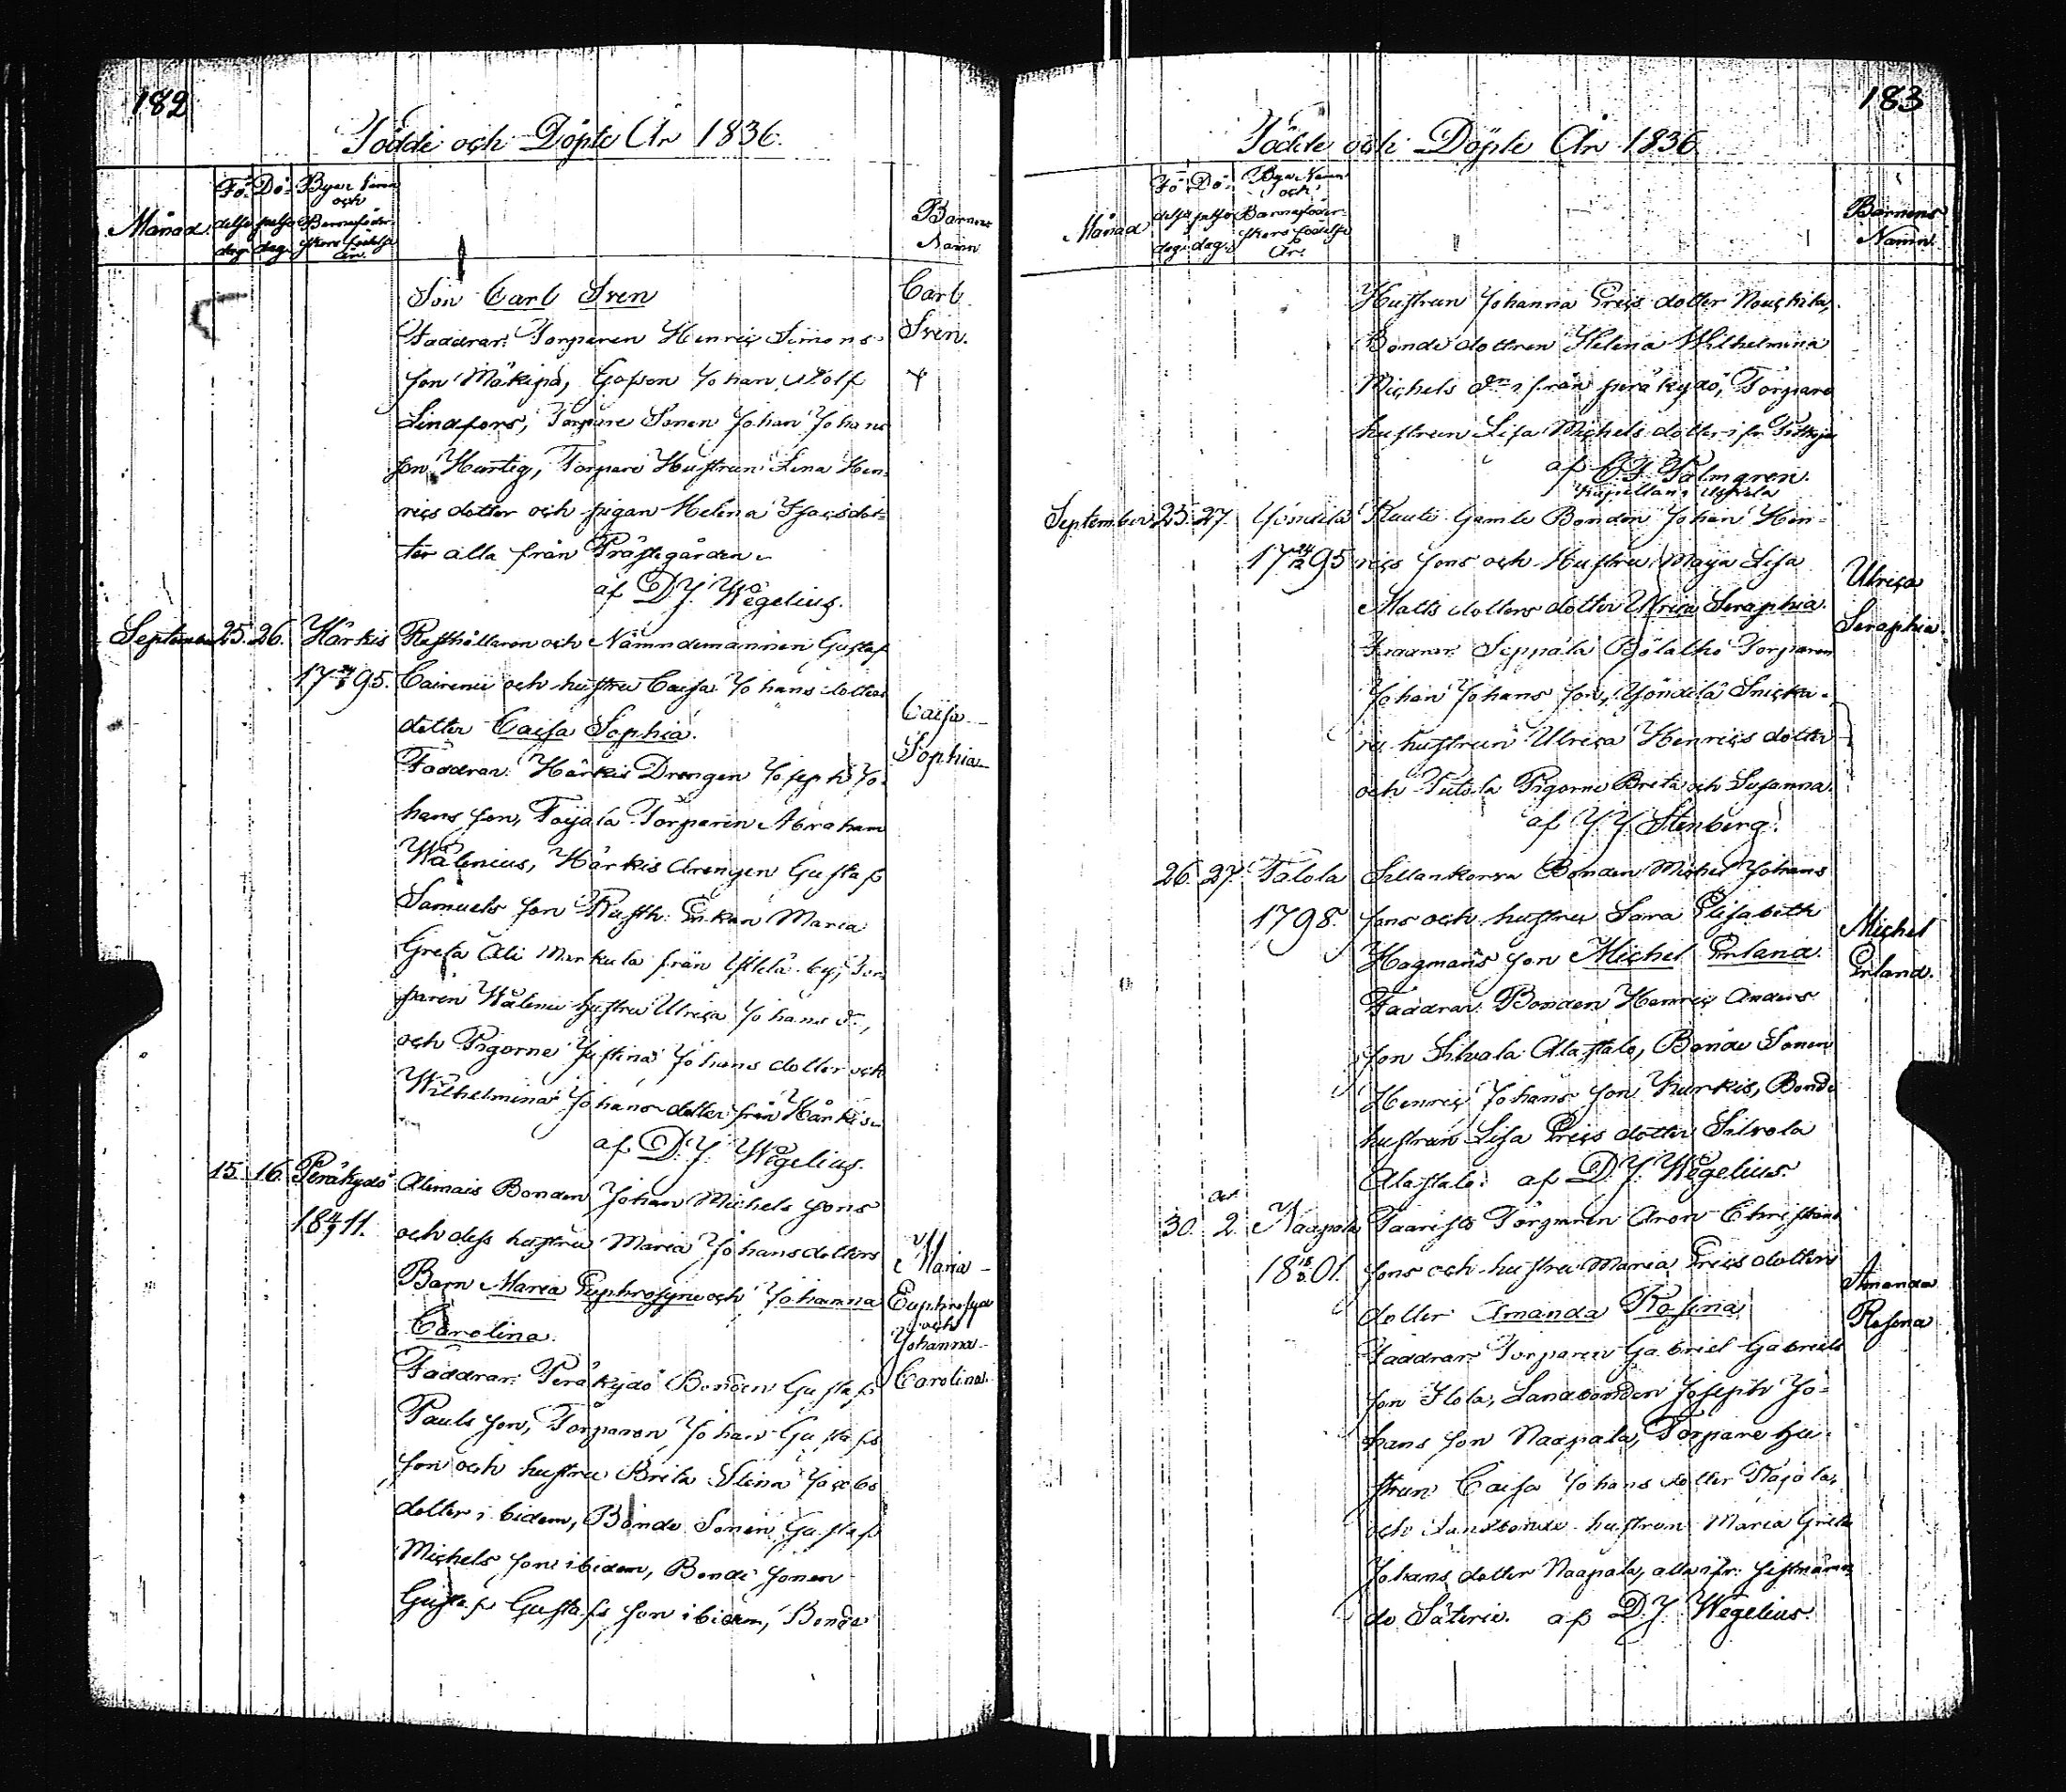 182
Födde och Döpte År 1836.
Månad
Fö-
delse
dag
Dö-
pelse
dag.
Byar Namn
och
Barnaföder-
skors födelse
År.
Barnens
Namn
Son Carl Sven
Carl
Sven.
Faddrar: Torparen Henric Simons
son Mäkipä, Johan Adolf
Lindfors, Torpare Sonen Johan Johans
son Hurtig, Torpare Hustrun Lena Hen-
rics dotter och pigan Helena Isacsdot-
ter alla från Prästegården.
af D. J. Wegelius.
September 25. 26. Härkis Rusthållaren och Nämndemannen Gustaf
1795. Cairenii och hustru Caisa Johans dotters
dotter Caisa Sophia.
Caisa
Sophia
Faddrar: Härkis Drengen Joseph Jo-
hans son, Toijala Torparen Abraham
Wålenius, Härkis drengen Gustaf
Samuels son Rusth: Enkan Maria
Greta Ali Markula från by, Tor-
paren Wålenii hustru Ulrica Johans d:,
och Pigorne Justina Johans dotter och
Wilhelmina Johans dotter från Härkis.
af D. J. Wegelius.
15. 16. Peräkydö Alimais Bonden Johan Michels sons
1811. och dess hustru Maria Johansdotters
Barn Maria Euphrosyne och Johanna
Carolina.
Maria
Euphrosyne
och
Johanna
Carolina.
Faddrar: Peräkydö Bonden Gustaf
Pauls son, Torparen Johan Gustafs
son och hustru Brita Stina Jacobs
dotter ibidem, Bonde Sonen Gustaf
Michels son ibidem, Bonde sonen
Gustaf Gustafs son ibidem, Bonde
183
Födde och Döpte År 1836.
Månad
Fö-
delse
dag.
Dö-
pelse
dag.
Bya Namn
och
Barnaföder-
skors födelse
År.
Barnens
Namn.
Hustrun Johanna Erics dotter Nouckila,
Bonde dottren Helena Wilhelmina
Michels d:r ifrån peräkydö, Torpare
hustrun Lisa Michels dotter ifr.
af C. F. Palmgren.
Kapellan i
September 25. 27. Yöndilä Klauti Gamle Bonden Johan Hen-
1795 rics sons och Hustru Maija Lisa
Matts dotters dotter Ulrica Seraphia.
Ulrica
Seraphia.
Faddrar: Seppälä Torparen
Johan Johans son, Yöndilä Snicka-
re hustrun Ulrica Henrics dotter
och Tutola Pigorne Brita och Susanna.
af J. J. Stenberg.
26. 27. Talola Sillankorva Bonden Michel Johans
1798. sons och hustru Sara Elisabeth
Hagmans son Michel Erland.
Michel
Erland.
Faddrar: Bonden Henric Anders
son Silvola Alastalo, Bonde Sonen
Henric Johans son Kurkis, Bonde
hustrun Lisa Erics dotter Silvola
Alastalo. af D. J. Wegelius.
30. Oct. 2. Naapala Torparen Aron Christians
1801. sons och hustru Maria Erics dotters
dotter Amanda Rosina.
Amanda
Rosina
Faddrar: Torparen Gabriel Gabriels
son Ilola, Landbonden Joseph Jo-
hans son Naapala, Torpare hu-
strun Caisa Johans dotter Rajala,
och Landbonde hustrun Maria Greta
Johans dotter Naapala, alla ifr:
de Säterie. af D. J. Wegelius.